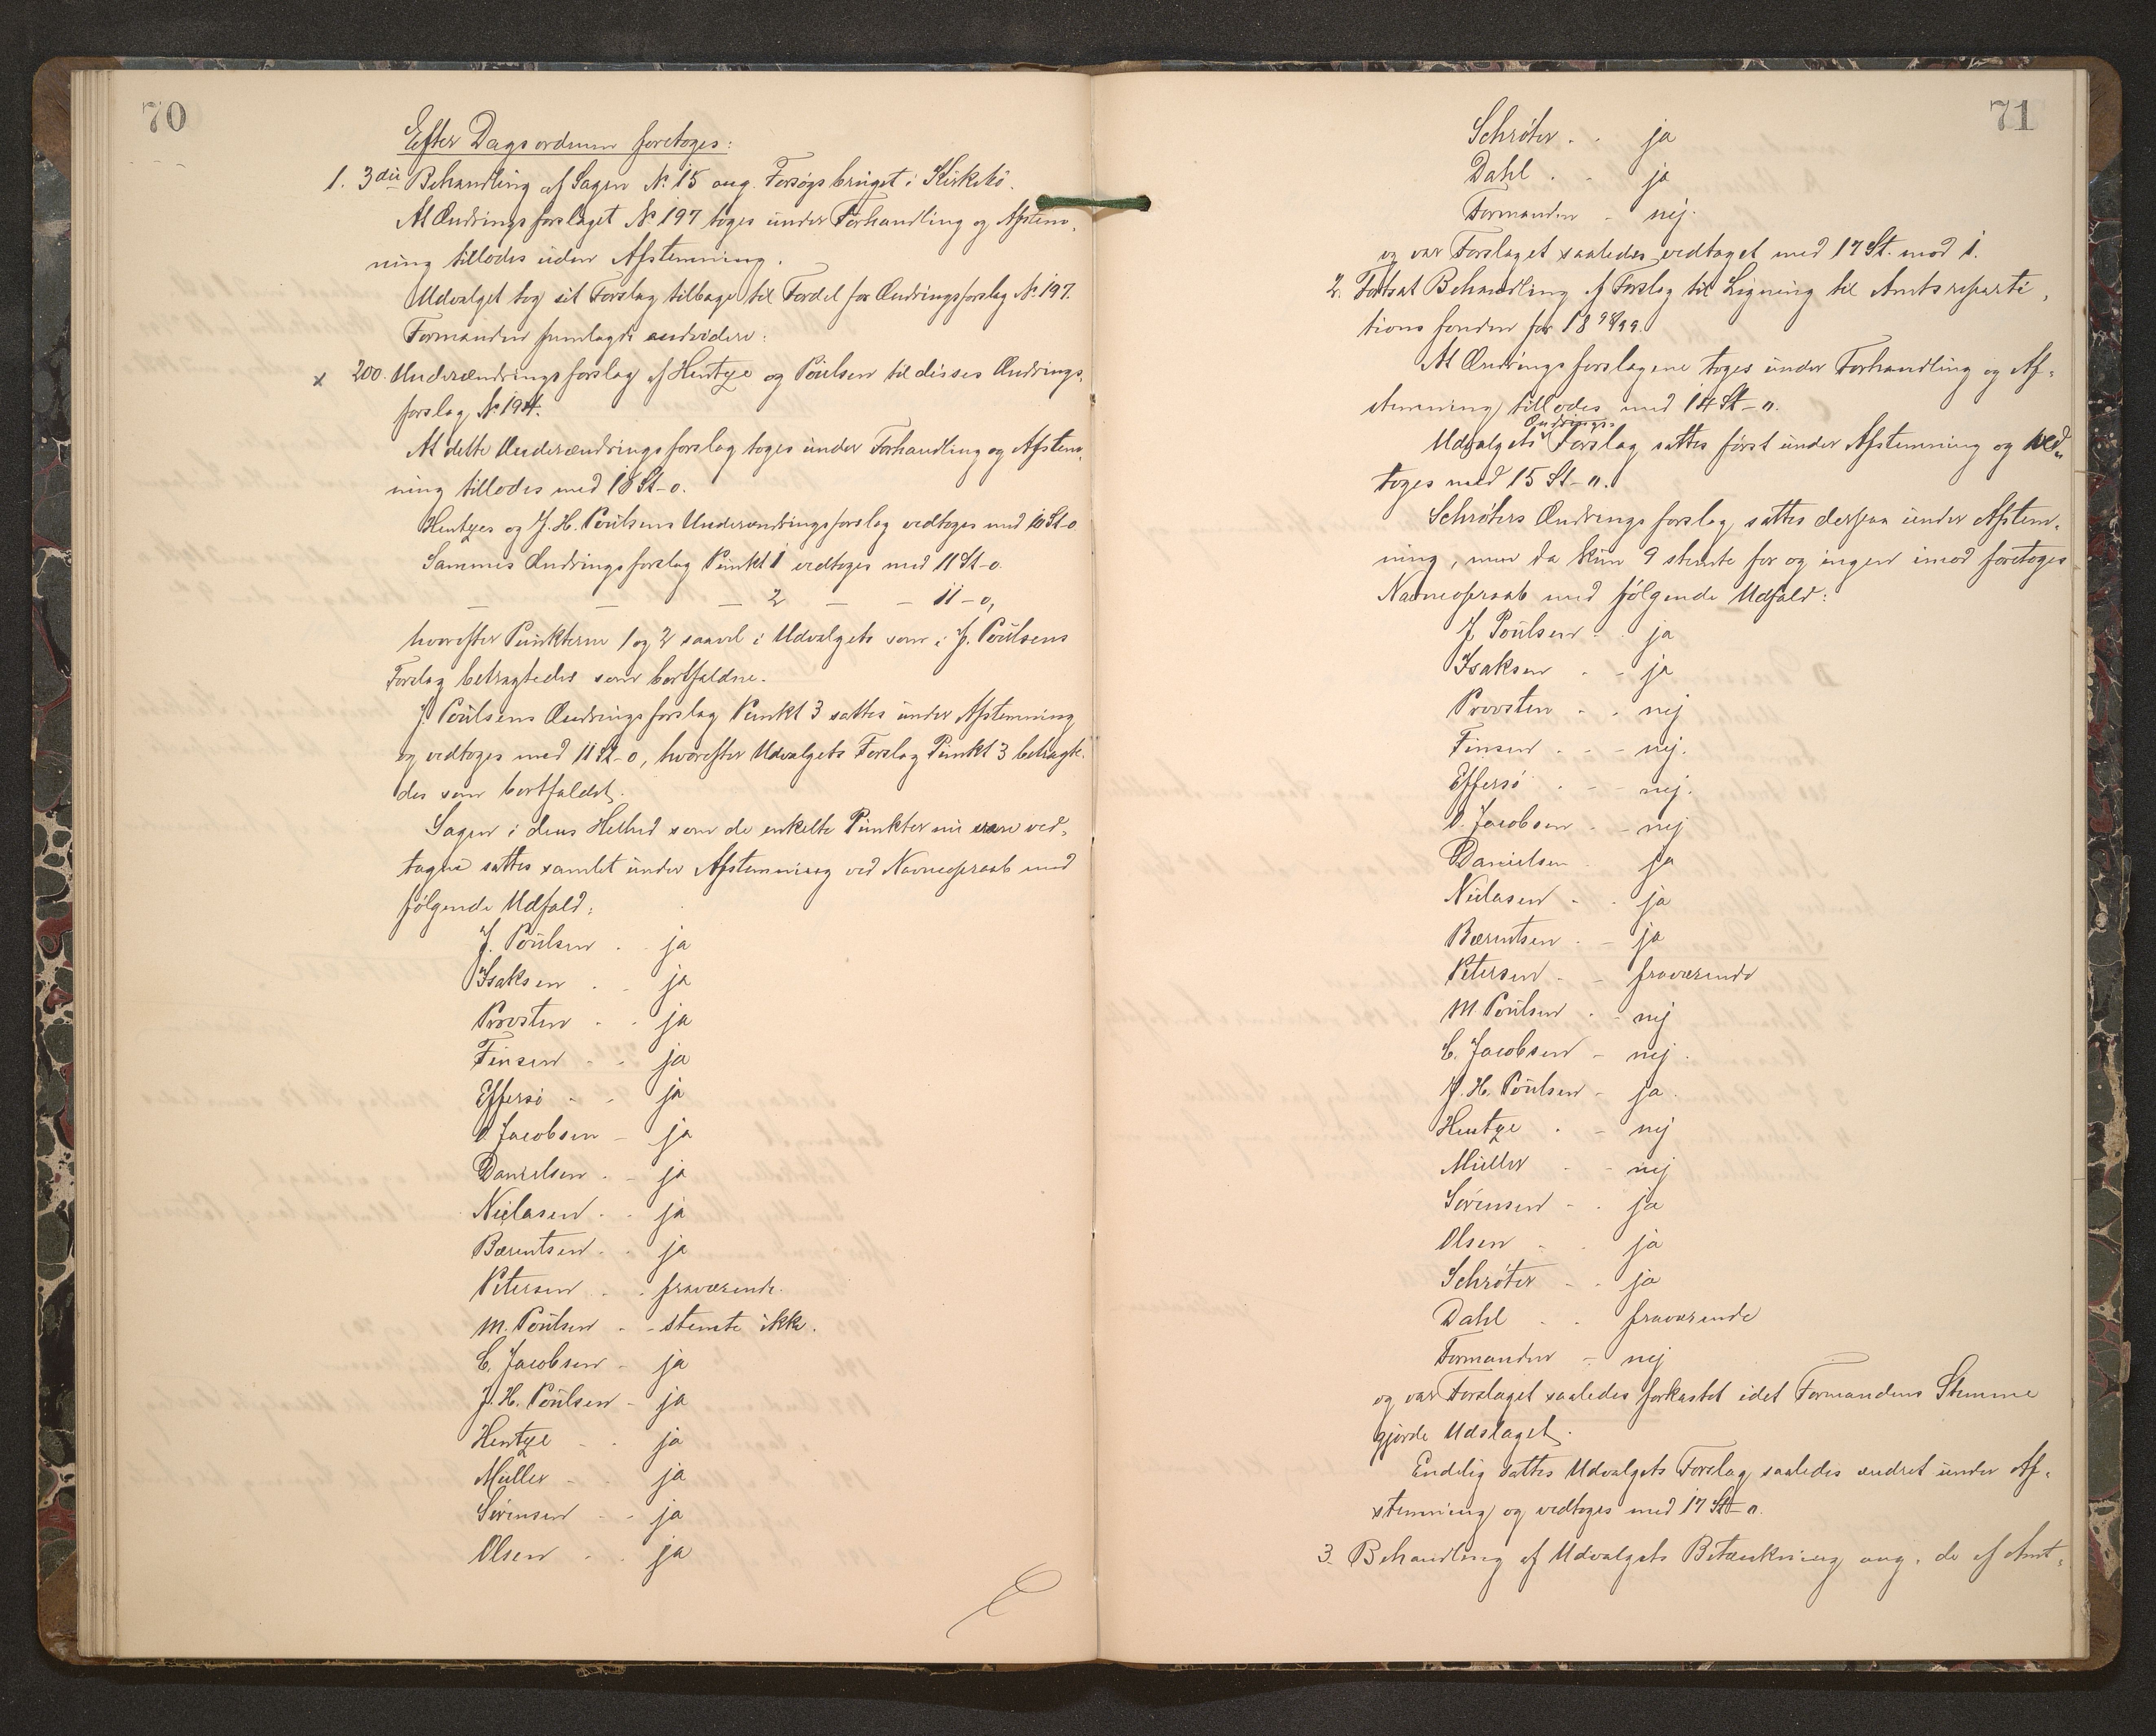 70
Efter Dagsordenen foretoges:
1. 3die Behandling af Sagen No 15 ang. Forsøgsbruget i Kirkebø.
At Ændringsforslaget No 197 toges under Forhandling og Afstem-
ning tillodes uden Afstemning.
Udvalget tog sit Forslag tilbage til Fordel for Ændringsforslag No 197.
Formanden fremlagde endvidere:
x 200. Underændringsforslag af Hentze og Poulsen til disses Ændrings-
forslag No 194.
At dette Underændringsforslag toges under Forhandling og Afstem-
ning tillodes med 18 St-0.
Hentzes og J. H. Poulsens Underændringsforslag vedtoges med 10 St-0
Sammes Ændringsforslag Punkt 1 vedtoges med 11 St-0.
— — — 2 — — 11-0,
hvorefter Punkterne 1 og 2 saavel i Udvalgets som i J. Poulsens
Forslag betragtedes som bortfaldne.
J. Poulsens Ændringsforslag Punkt 3 sattes under Afstemning
og vedtoges med 11 St-0, hvorefter Udvalgets Forslag Punkt 3 betragte-
des som bortfaldet.
Sagen i dens Helhed som de enkelte Punkter nu vare ved-
tagne sattes samlet under Afstemning ved Navneopraab med
følgende Udfald:
J. Poulsen . - ja
Isaksen . - ja
Provsten - - ja
Finsen - - ja
Effersø - - ja
O. Jacobsen - ja
Danielsen . - ja
Niclasen . - ja
Bærentsen - - ja
Petersen . - fraværende.
M. Poulsen - - stemte ikke.
C. Jacobsen - ja
J. H. Poulsen - ja
Hentze - - ja
Müller - - ja
Sørensen - - ja
Olsen - - ja
71
Schrøter . - ja
Dahl . - ja
Formanden - nej.
og var Forslaget saaledes vedtaget med 17 St. mod 1.
2. Fortsat Behandling af Forslag til Ligning til Amtsreparti-
tionsfonden for 18 98/99.
At Ændringsforslagene toges under Forhandling og Af-
stemning tillodes med 14 St-0.
Ændrings-
Udvalgets Forslag sattes først under Afstemning og ved-
toges med 15 St-0.
Schrøters Ændringsforslag sattes derpaa under Afstem-
ning, men da kun 9 stemte for og ingen imod foretoges
Navneopraab med følgende Udfald:
J. Poulsen - - ja
Isaksen . - ja
Provsten - - nej
Finsen . - - nej.
Effersø . - - nej.
O. Jacobsen - - nej
Danielsen - ja
Niclasen - - ja
Bærentsen . - ja
Petersen - - fraværende
M Poulsen . - nej
C. Jacobsen - nej.
J. H. Poulsen - ja.
Hentze . - nej
Müller - - nej
Sørensen - - ja
Olsen - - ja
Schrøter - - ja
Dahl - - fraværende
Formanden - nej
og var Forslaget saaledes forkastet idet Formandens Stemme
gjorde Udslaget.
Endelig sattes Udvalgets Forslag saaledes ændret under Af-
stemning og vedtoges med 17 St-0.
3. Behandling af Udvalgets Betænkning ang. de af Amt-